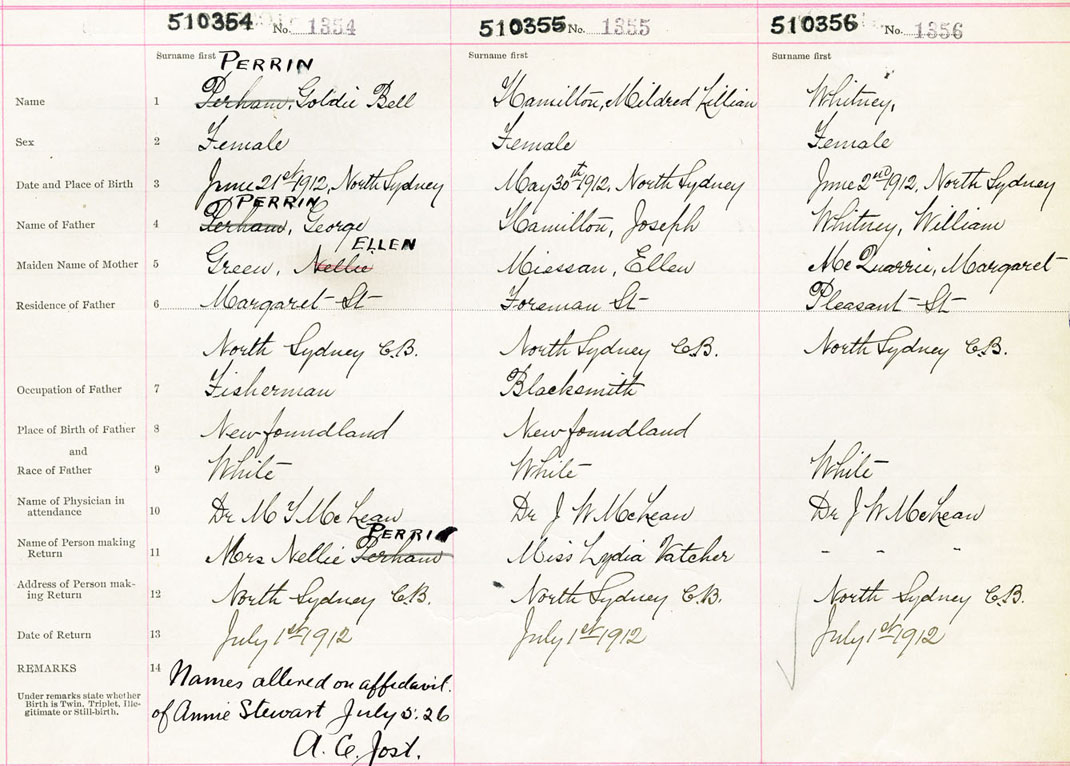 510354 No. 1354 510355 No. 1355 510356 No. 1356
Surname first Surname first Surname first
PERRIN
Name 1 Perham, Goldie Bell Hamilton, Mildred Lillian Whitney,
Sex 2 Female Female Female
Date and Place of Birth 3 June 21st 1912, North Sydney May 30th 1912, North Sydney June 2nd 1912, North Sydney
PERRIN
Name of Father 4 Perham, George Hamilton, Joseph Whitney, William
ELLEN
Maiden Name of Mother 5 Green, Nellie Miessan, Ellen McQuarrie, Margaret
Residence of Father 6 Margaret St Foreman St Pleasant St
North Sydney C.B. North Sydney C.B. North Sydney C.B.
Occupation of Father 7 Fisherman Blacksmith
Place of Birth of Father 8 Newfoundland Newfoundland
and
Race of Father 9 White White White
Name of Physician in
attendance 10 Dr M T McLean Dr J W McLean Dr J W McLean
PERRIN
Name of Person making
Return 11 Mrs Nellie Perham Miss Lydia Vatcher - - -
Address of Person mak-
ing Return 12 North Sydney C.B. North Sydney C.B. North Sydney C.B.
Date of Return 13 July 1st 1912 July 1st 1912 July 1st 1912
REMARKS 14 Names altered on affidavit
Under remarks state whether
Birth is Twin, Triplet, Ille-
gitimate or Still-birth.
of Annie Stewart July 5. 26
A. C. Jost.